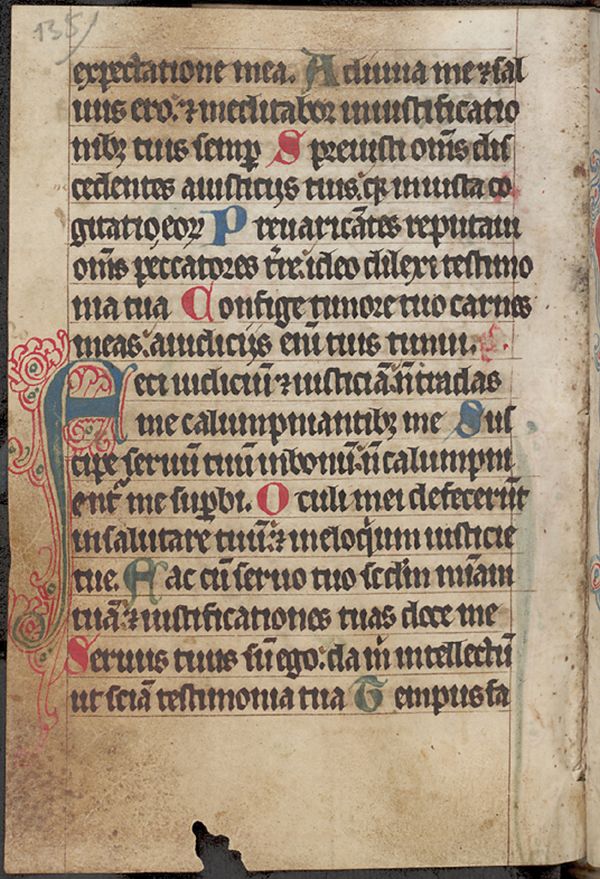 135
expectatione mea. Adiuua me ⁊ sal
uus ero.⁊ meditabor iniustificatio
nibꝫ tuis semꝑ Spreuisti om̄s dis
cedentes aiudiciis tuis. qꝛ iniusta co
gitatio eoꝝ Preuaricātes reputaui
om̄s peccatores t̄re. ideo dilexi testimo
nia tua Confige timore tuo carnes
meas. aiudiciis eni᷑ tuis timui.
Feci iudiciū ⁊ iusticiā.n̄ tradas
me calumpniantibꝫ me Sus
cipe seruū tuū inbonū.n̄ calumpni
ent᷑ me suꝑbi. Oculi mei defecerūt
insalutare tuū.⁊ ineloq̄ium iusticie
tue. Fac cū seruo tuo scdm̄ mīam
tuā ⁊ iustificationes tuas doce me
Seruus tuus sū ego. da m̄ intellectū
ut sciā testimonia tua Tempus fa